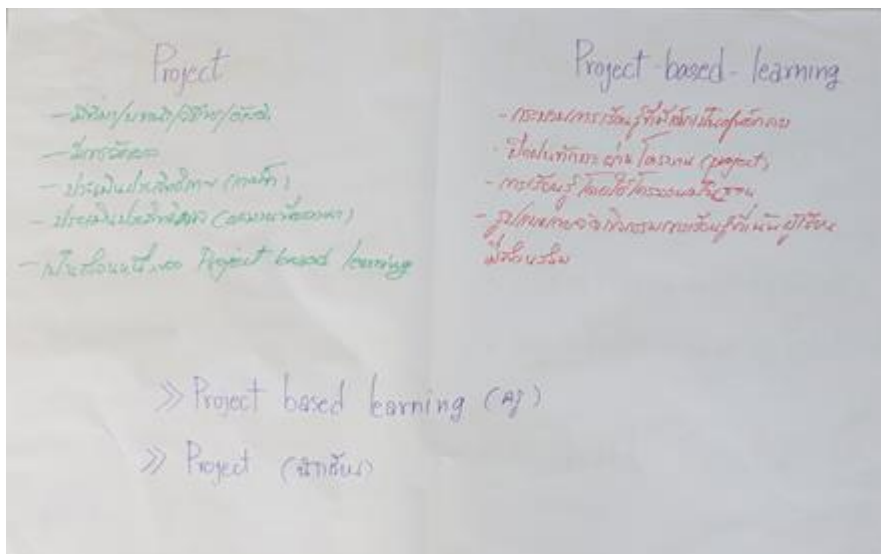 Project
- มีที่มา/แนวคิด/วิธีการ/
- มีการวัดผล
- ประเมินประสิทธิภาพ
- ประเมินประสิทธิผล
- เป็นส่วนหนึ่งของ Project based learning
Project-based-learning
- กระบวนการเรียนรู้ที่
- ฝึกฝนทักษะผ่านโครงงาน (project)
- การเรียนรู้โดยใช้โครงงานเป็นฐาน
- รูปแบบการจัดกิจกรรมการเรียนรู้ที่เน้นผู้เรียน
มีส่วนร่วม
>> Project based learning (ครู)
>> Project (นักเรียน)